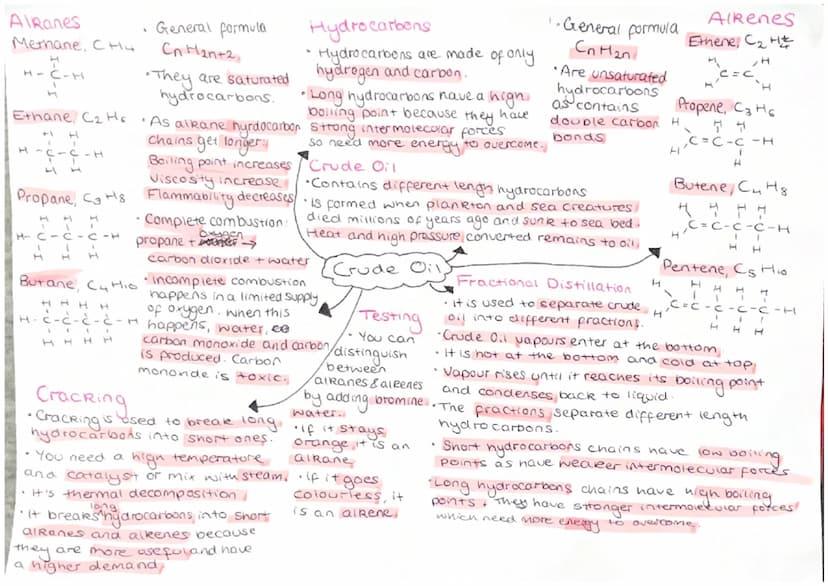 Alkanes
Methane, CH4
H
H-C-H
H
Ethane, C2H6
H H
H-C-C-H
H H
Propane, C3H8
H H H
H-C-C-C-H
H H H
Butane, C4H10
H H H H
H-C-C-C-C-H
H H H H
• General formula
CnH2n+2
• They are saturated
hydrocarbons.
• As alkane hyrdocarbon
chains get longer:
Boiling point increases
Viscosity increase
Flammability decreases
• Complete combustion:
oxygen
propane + →
carbon dioxide + water
• Incomplete combustion
happens in a limited supply
of oxygen. When this
happens, water, co
carbon monoxide and carbon
is produced. Carbon
monoxide is toxic.
Hydrocarbons
• Hydrocarbons are made of only
hydrogen and carbon.
• Long hydrocarbons have a high
boiling point because they have
strong intermolecular forces
so need more energy to overcome.
Crude Oil
• Contains different lengh hydrocarbons
• Is formed when plankton and sea creatures
died millions of years ago and sunk to sea bed.
Heat and high pressure converted remains to oil.
Crude Oil
• General formula
CnH2n
• Are unsaturated
hydrocarbons
as contains
double carbon
bonds
Alkenes
Ethene, C2H4
H H
C=C
H H
Propene, C3H6
H H H
C=C-C-H
H H
Butene, C4H8
H H H H
C=C-C-C-H
H H H
Pentene, C5H10
H H H H H
C=C-C-C-C-H
H H H H
Fractional Distillation
• It is used to separate crude
oil into different fractions.
• Crude Oil vapours enter at the bottom
• It is hot at the bottom and cold at top.
• Vapour rises until it reaches its boiling point
and condenses back to liquid.
• The fractions separate different length
hydrocarbons.
• Short hydrocarbons chains have low boiling
points as have weaker intermolecular forces
• Long hydrocarbons chains have high boiling
points. They have stronger intermolecular forces
which need more energy to overcome.
Testing
• You can
distinguish
between
alkanes & alkenes
by adding bromine
water.
• If it stays
orange, it is an
alkane
• If it goes
colourless, it
is an alkene
Cracking
• Cracking is used to break long
hydrocarbons into short ones.
• You need a high temperature
and catalyst or mix with steam.
• It's thermal decomposition
long
• It breaks hydrocarbons into short
alkanes and alkenes because
they are more useful and have
a higher demand